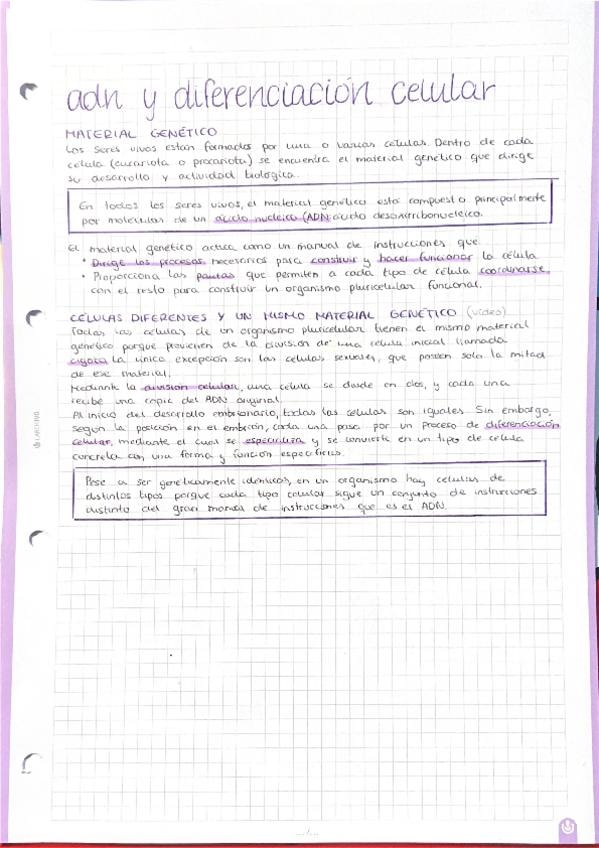 adn y diferenciación celular
MATERIAL GENÉTICO
Los seres vivos están formados por una o varias células. Dentro de cada
célula (eucariota o procariota) se encuentra el material genético que dirige
su desarrollo y actividad biológica.
En todos los seres vivos, el material genético está compuesto principalmente
por moléculas de un ácido nucleico (ADN: ácido desoxirribonucleico.
El material genético actúa como un manual de instrucciones que
• Dirige los procesos necesarios para construir y hacer funcionar la célula
• Proporciona las pautas que permiten a cada tipo de célula coordinarse
con el resto para construir un organismo pluricelular funcional.
CÉLULAS DIFERENTES Y UN MISMO MATERIAL GENÉTICO (video)
Todas las células de un organismo pluricelular tienen el mismo material
genético porque provienen de la división de una célula inicial llamada
cigoto. La única excepción son las células sexuales, que poseen solo la mitad
de ese material.
Mediante la división celular, una célula se divide en dos, y cada una
recibe una copia del ADN original.
Al inicio del desarrollo embrionario, todas las células son iguales. Sin embargo,
según la posición en el embrión, cada una pasa por un proceso de diferenciación
celular, mediante el cual se especializa y se convierte en un tipo de célula
concreta con una forma y función específicas.
Pese a ser genéticamente idénticas, en un organismo hay células de
distintos tipos porque cada tipo celular sigue un conjunto de instrucciones
distinto del gran manual de instrucciones que es el ADN.